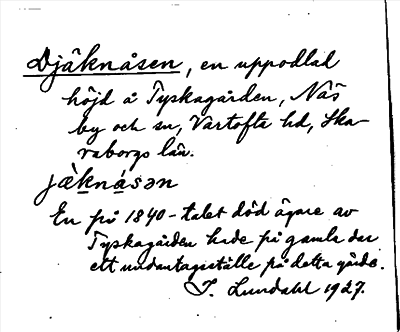 Djäknåsen, en uppodlad
höjd å Tyskagården, Näs
by och sn, Vartofta hd, Ska-
raborgs län.
jȁknása̱n
En på 1840-talet död ägare av
Tyskagården hade på gamla dar
ett undantagsställe på detta gärde.
J. Lundahl 1927.